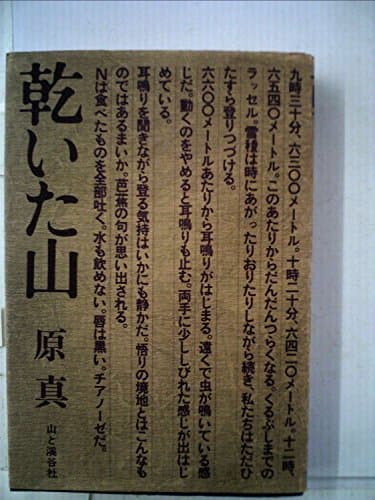 乾いた山
原 真
山と溪谷社
九時三十分、六三〇〇メートル。十時二十分、六四二〇メートル。十二時、
六五四〇メートル。このあたりからだんだんつらくなる。くるぶしまでの
ラッセル。雪稜は時にあがったりおりたりしながら続き、私たちはただひ
たすら登りつづける。
六六〇〇メートルあたりから耳鳴りがはじまる。遠くで虫が鳴いている感
じだ。動くのをやめると耳鳴りも止む。両手に少ししびれた感じが出はじ
めている。
耳鳴りを聞きながら登る気持はいかにも静かだ。悟りの境地とはこんなも
のではあるまいか。芭蕉の句が思い出される。
Nは食べたものを全部吐く。水も飲めない。唇は黒い。チアノーゼだ。